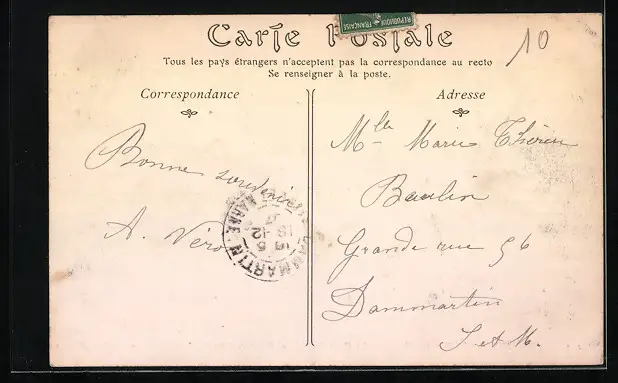 Carte Postale
REPUBLIQUE FRANÇAISE
10
Tous les pays étrangers n'acceptent pas la correspondance au recto
Se renseigner à la poste.
Correspondance
Bonne souvenir
A. Véro
DAMMARTIN
MARNE
15 5
18-12
Adresse
Mlle Marie Thérèse
Baulin
Grande rue 56
Dammartin
S. et M.